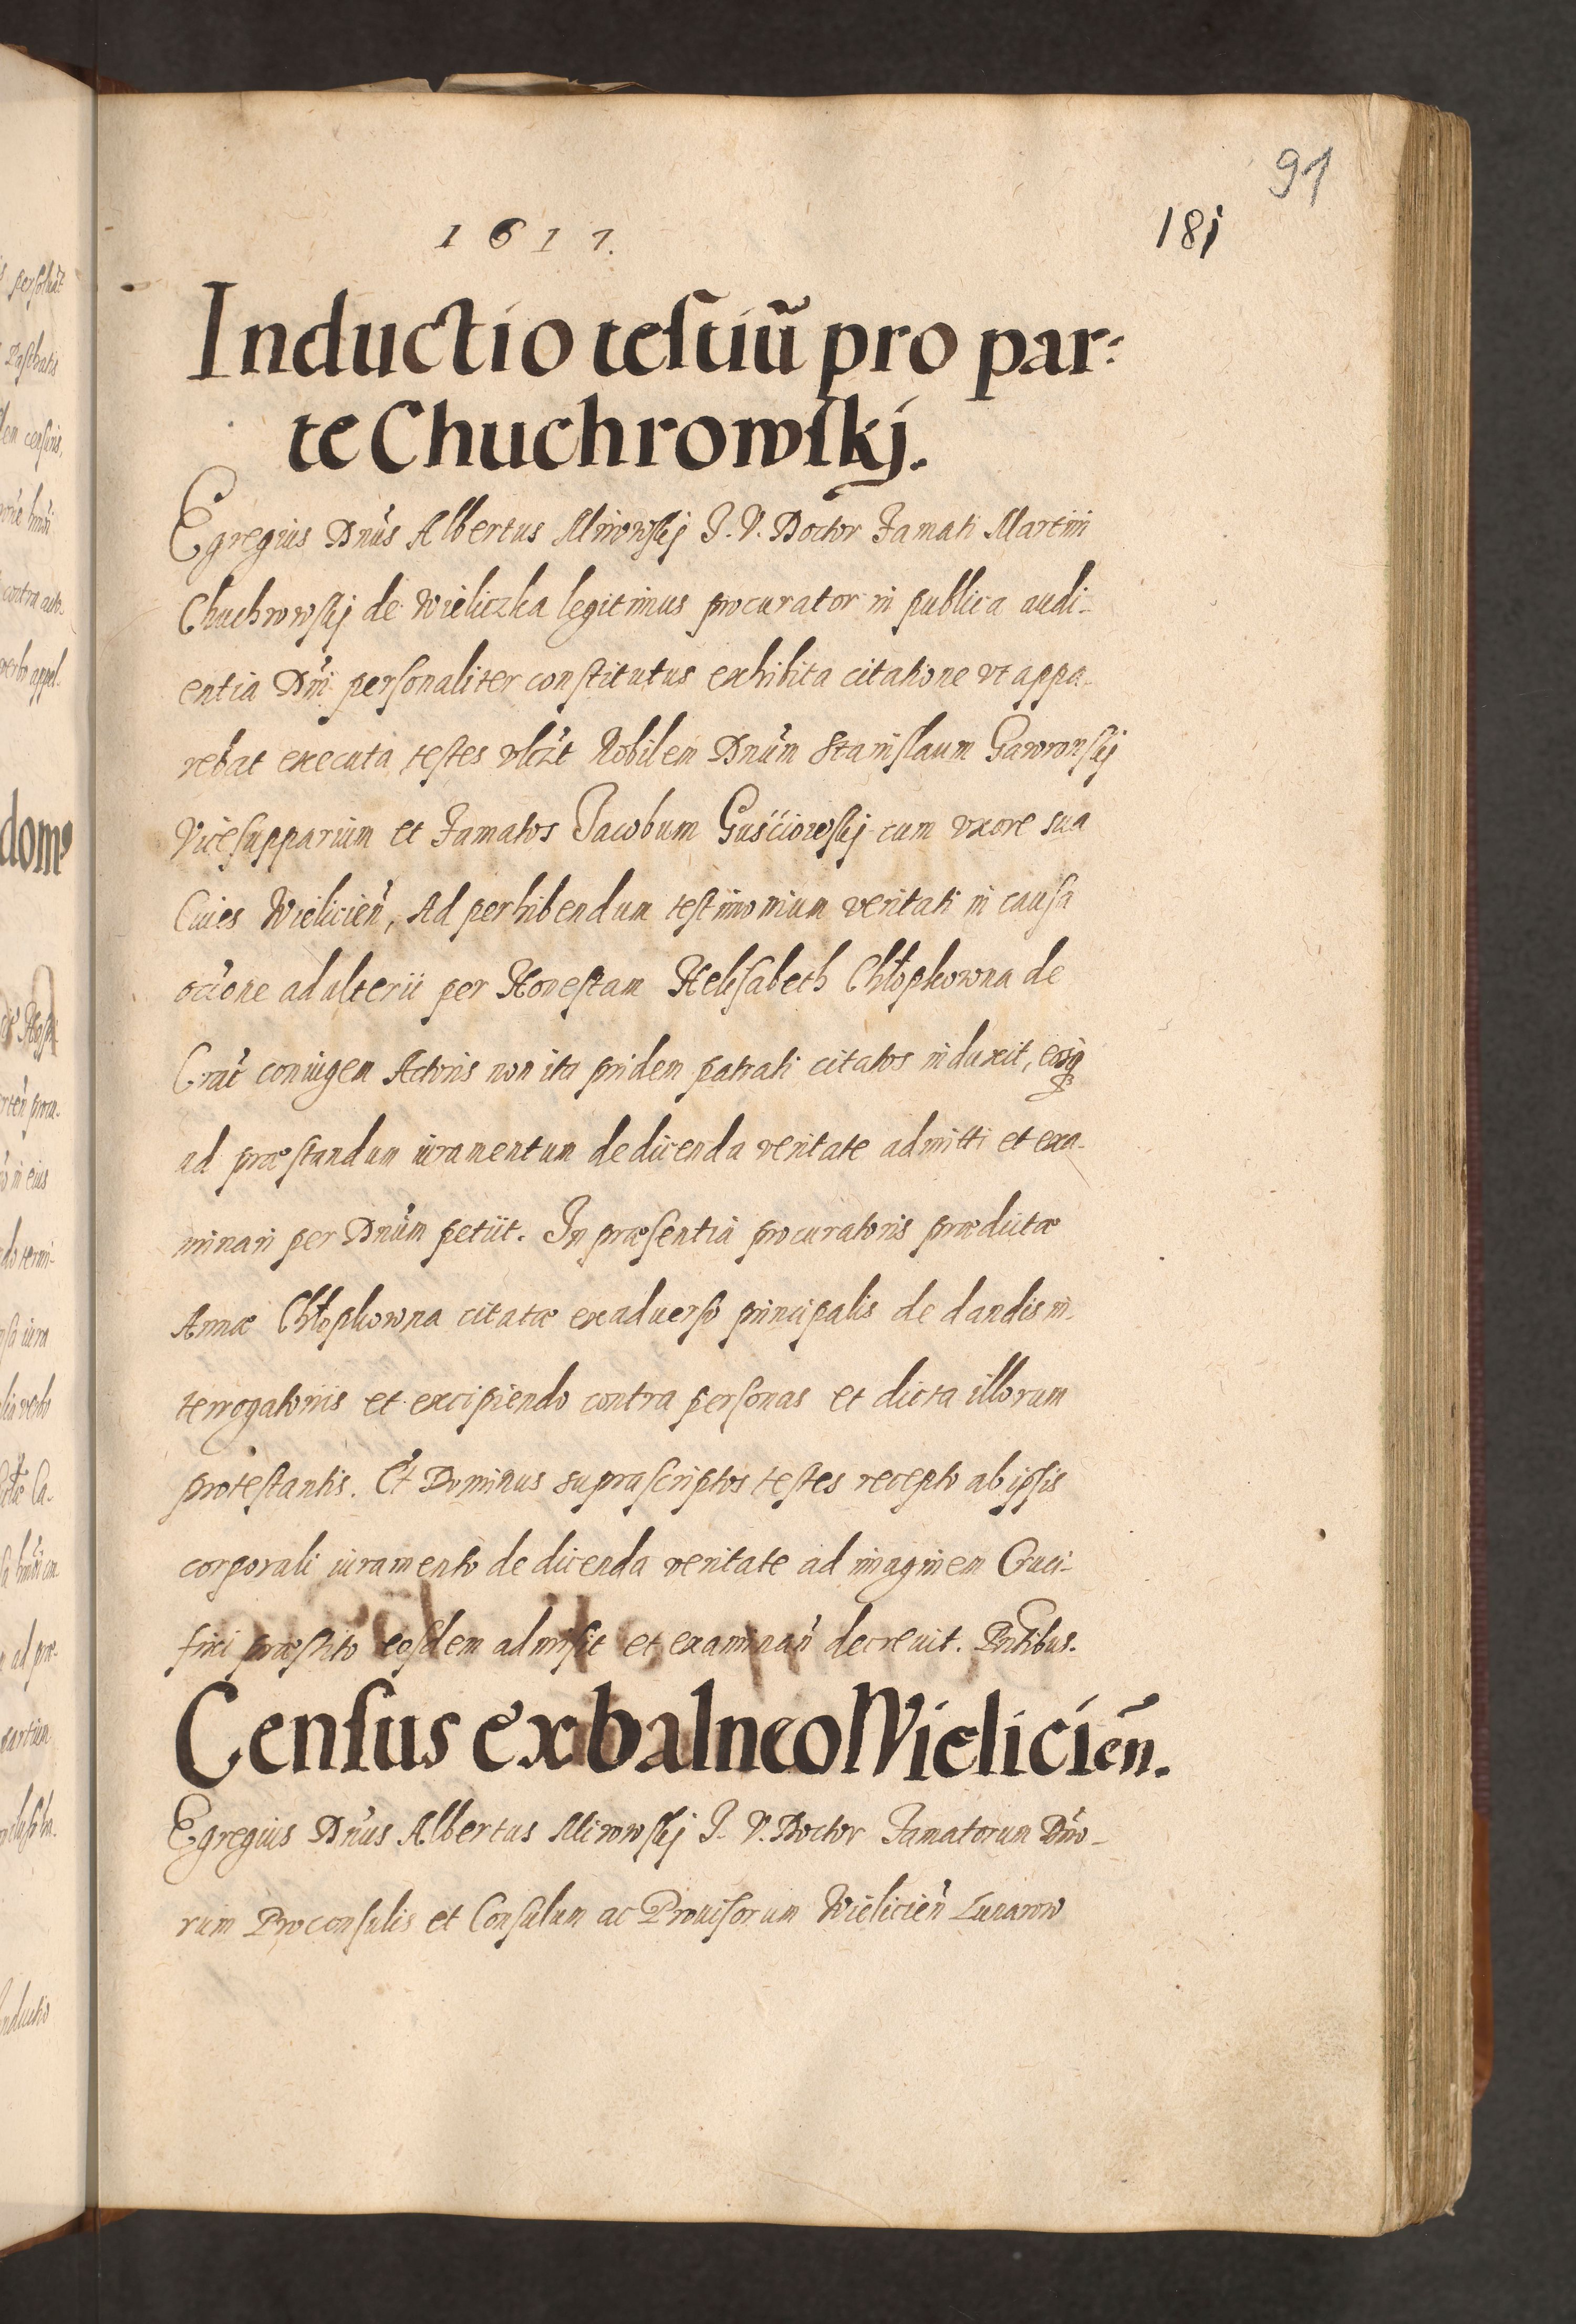 91
1617.
181
Inductio testiū pro par:
te Chuchrowskj.
Egregius Dn̄us Albertus Mirowskj J. V. Doctor Famati Martini
Chuchrowskj de Wieliczka legitimus procurator in publica audi-
entia Dn̄i personaliter constitutus exhibita citatione vt appa-
rebat executa testes vlczt Nobilem Dn̄um Stanislaum Gawronskj
Vicesupparium et Famatos Jacobum Guściowskj cum vxore sua
Ciues Wielicien̄, Ad perhibendum testimonium veritati in causa
occ̄one adulterii per Honestam Helisabeth Chłopkowna de
Crac̄ coniugem Actoris non ita pridem patrati citatos induxit, eosq
ad præstandum iuramentum de dicenda veritate admitti et exa-
minari per Dn̄um petiit. In præsentia procuratoris prædictæ
Annæ Chłopkowna citatæ ex aduerso principalis de dandis in-
terrogatoriis et excipiendo contra personas et dicta illorum
protestantis. Et Dominus suprascriptos testes recepto ab ipsis
corporali iuramento de dicenda veritate ad imaginem Cruci-
fixi præstito eosdem admisit et examinan̄ decreuit. Pn̄tibus.
Census ex balneo Wielicien̄.
Egregius Dn̄us Albertus Mirowskj J. V. Doctor Famatorum Dn̄o-
rum Proconsulis et Consulum ac Prouisorum Wielicien̄